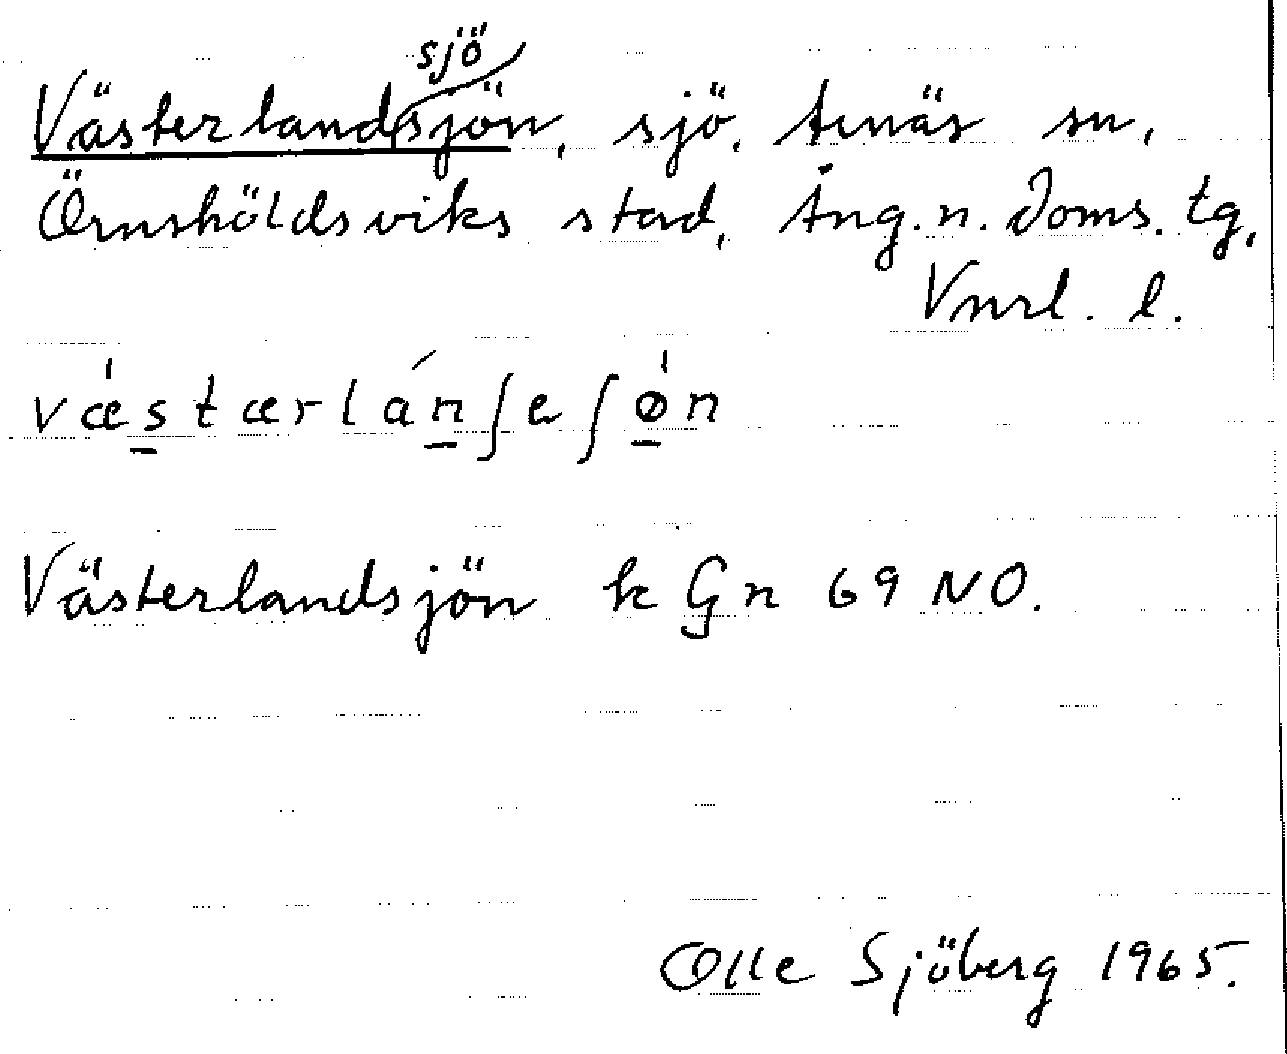 sjö
Västerlandsjön, sjö, Arnäs sn,
Örnsköldsviks stad, Ång. n. Doms. tg,
Vnrl. l.
væ̍stærlánʃeʃø̍n
Västerlandsjön k Gn 69 NO.
Olle Sjöberg 1965.